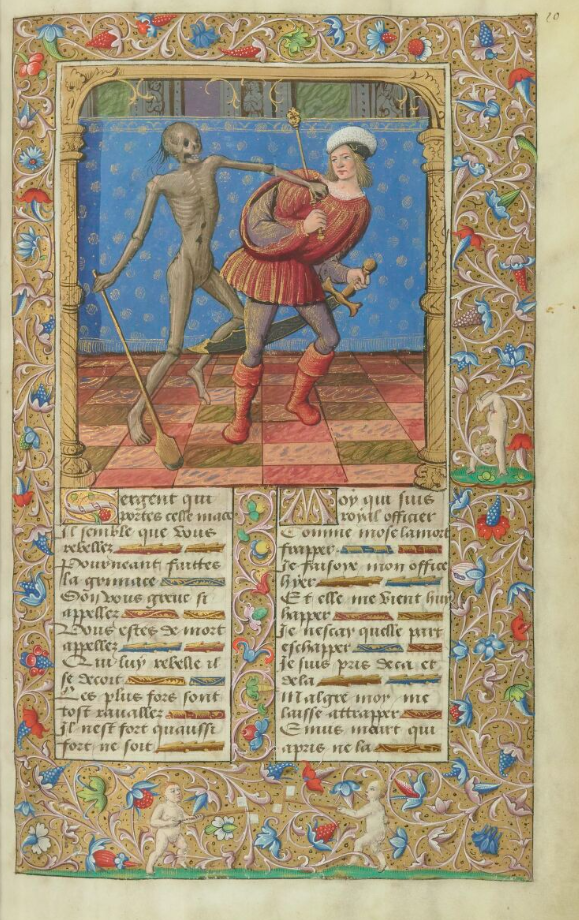 20
Sergent qui
portes celle mace
Il semble que vous
rebellez
Pour neant faittes
la grimace
Son vous greue si
appellez
Vous estes de mort
appellez
Qui luy rebelle il
se decoit
Les plus fors sont
tost rauallez
Il nest fort quaussi
fort ne soit
Moy qui suis
royal officier
Comme mose la mort
frapper
Je faisoye mon office
hyer
Et elle me vient huy
happer
Je nescay quelle part
eschapper
Je suis pris deca et
dela
Malgre moy me
laisse attrapper
Enuis meurt qui
apris ne la